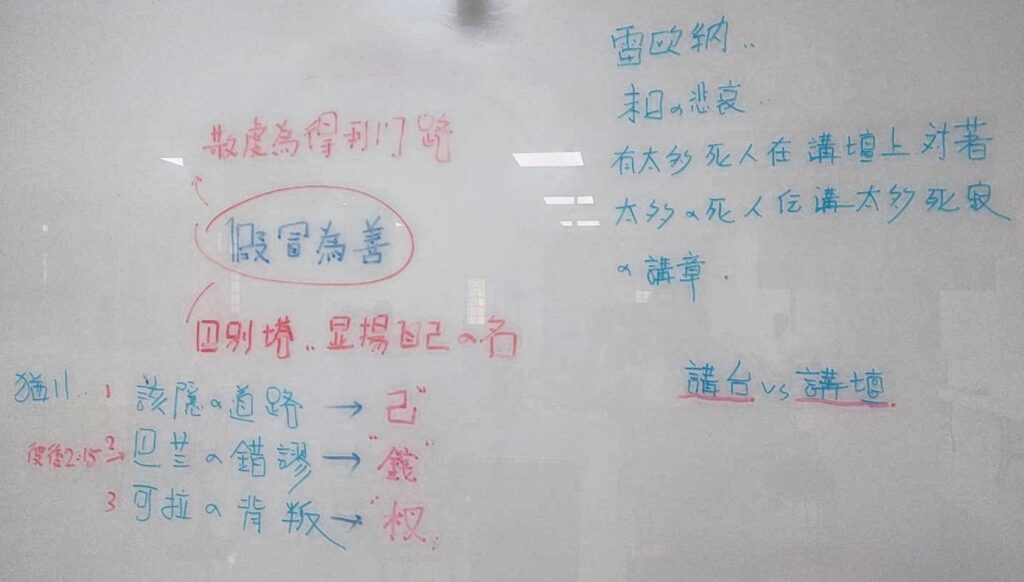 敬虔為得利门路
假冒為善
巴別塔..显揚自己の名
猶11.. 1 該隱の道路 → 己"
彼後2:15 → 2 巴兰の錯謬 → "錢"
3 可拉の背叛 → "权"
雷欧納..
末日の悲哀.
有太多死人在講壇上对著
太多の死人传講太多死寂
の講章.
講台 vs 講壇.